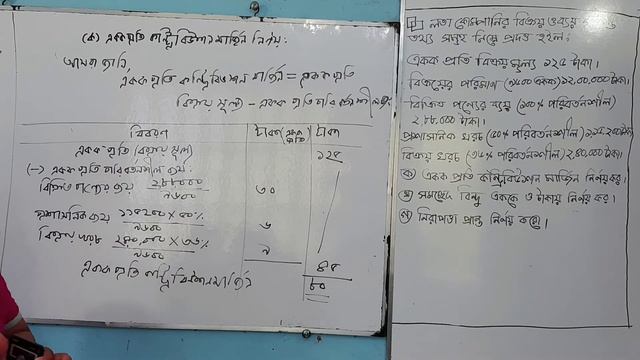 (ক) একক প্রতি কন্ট্রিবিউশন মার্জিন নির্ণয়:
আমরা জানি,
একক প্রতি কন্ট্রিবিউশন মার্জিন = একক প্রতি
বিক্রয় মূল্য - একক প্রতি
বিবরণ টাকা টাকা
একক প্রতি বিক্রয় মূল্য ১২৫
(-) একক প্রতি পরিবর্তনশীল ব্যয়:
বিক্রিত পণ্যের ব্যয় ২৮৮০০০ ৩০
৯৬০০
প্রশাসনিক ব্যয় ১১৫২০০ × ৫০% ৬
৯৬০০
বিক্রয় খরচ ২৪০,০০০ × ৩৬% ৯
৯৬০০
৪৫
একক প্রতি কন্ট্রিবিউশন মার্জিন ৮০
লতা কোম্পানির বিক্রয় ও ব্যয়
তথ্য সমূহ নিম্নে প্রদত্ত হইল:
একক প্রতি বিক্রয় মূল্য ১২৫ টাকা।
বিক্রয়ের পরিমাণ (৯৬০০ একক) ১২,০০,০০০ টাকা।
বিক্রিত পণ্যের ব্যয় (১০০% পরিবর্তনশীল)
২,৮৮,০০০ টাকা।
প্রশাসনিক খরচ (৫০% পরিবর্তনশীল) ১,১৫,২০০ টাকা
বিক্রয় খরচ (৩৬% পরিবর্তনশীল) ২,৪০,০০০ টাকা।
ক) একক প্রতি কন্ট্রিবিউশন মার্জিন নির্ণয় কর।
খ) সমচ্ছেদ বিন্দু এককে ও টাকায় নির্ণয় কর।
গ) নিরাপত্তা প্রান্ত নির্ণয় করো।